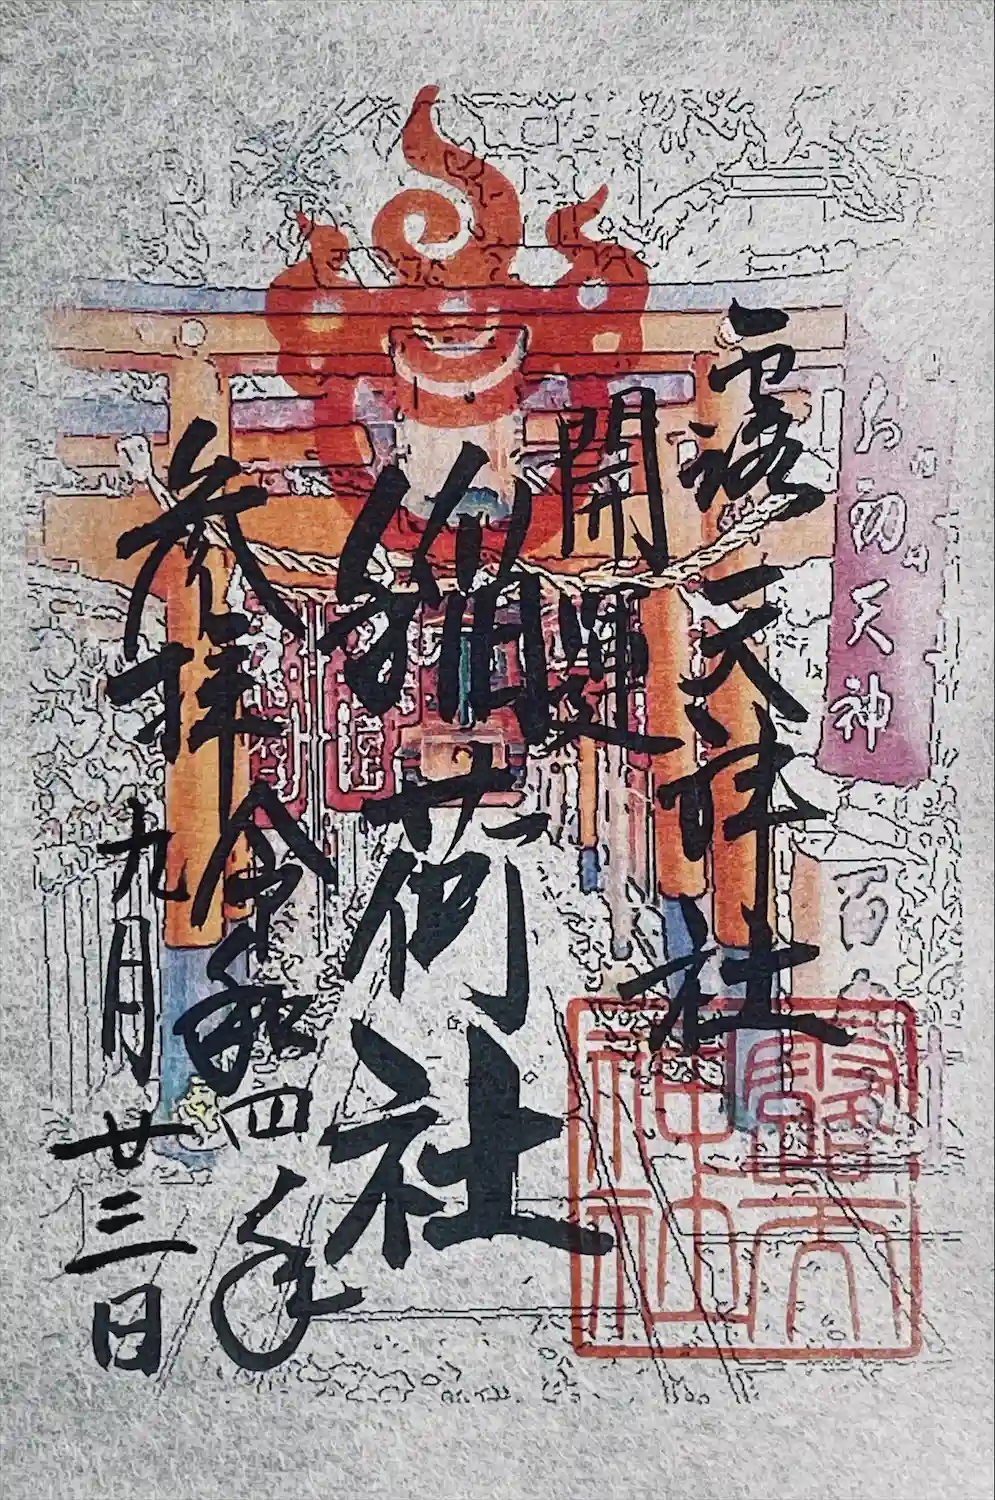 お初天神
露天神社
開運
稲荷社
参拝
令和四年
九月廿三日
露天神社